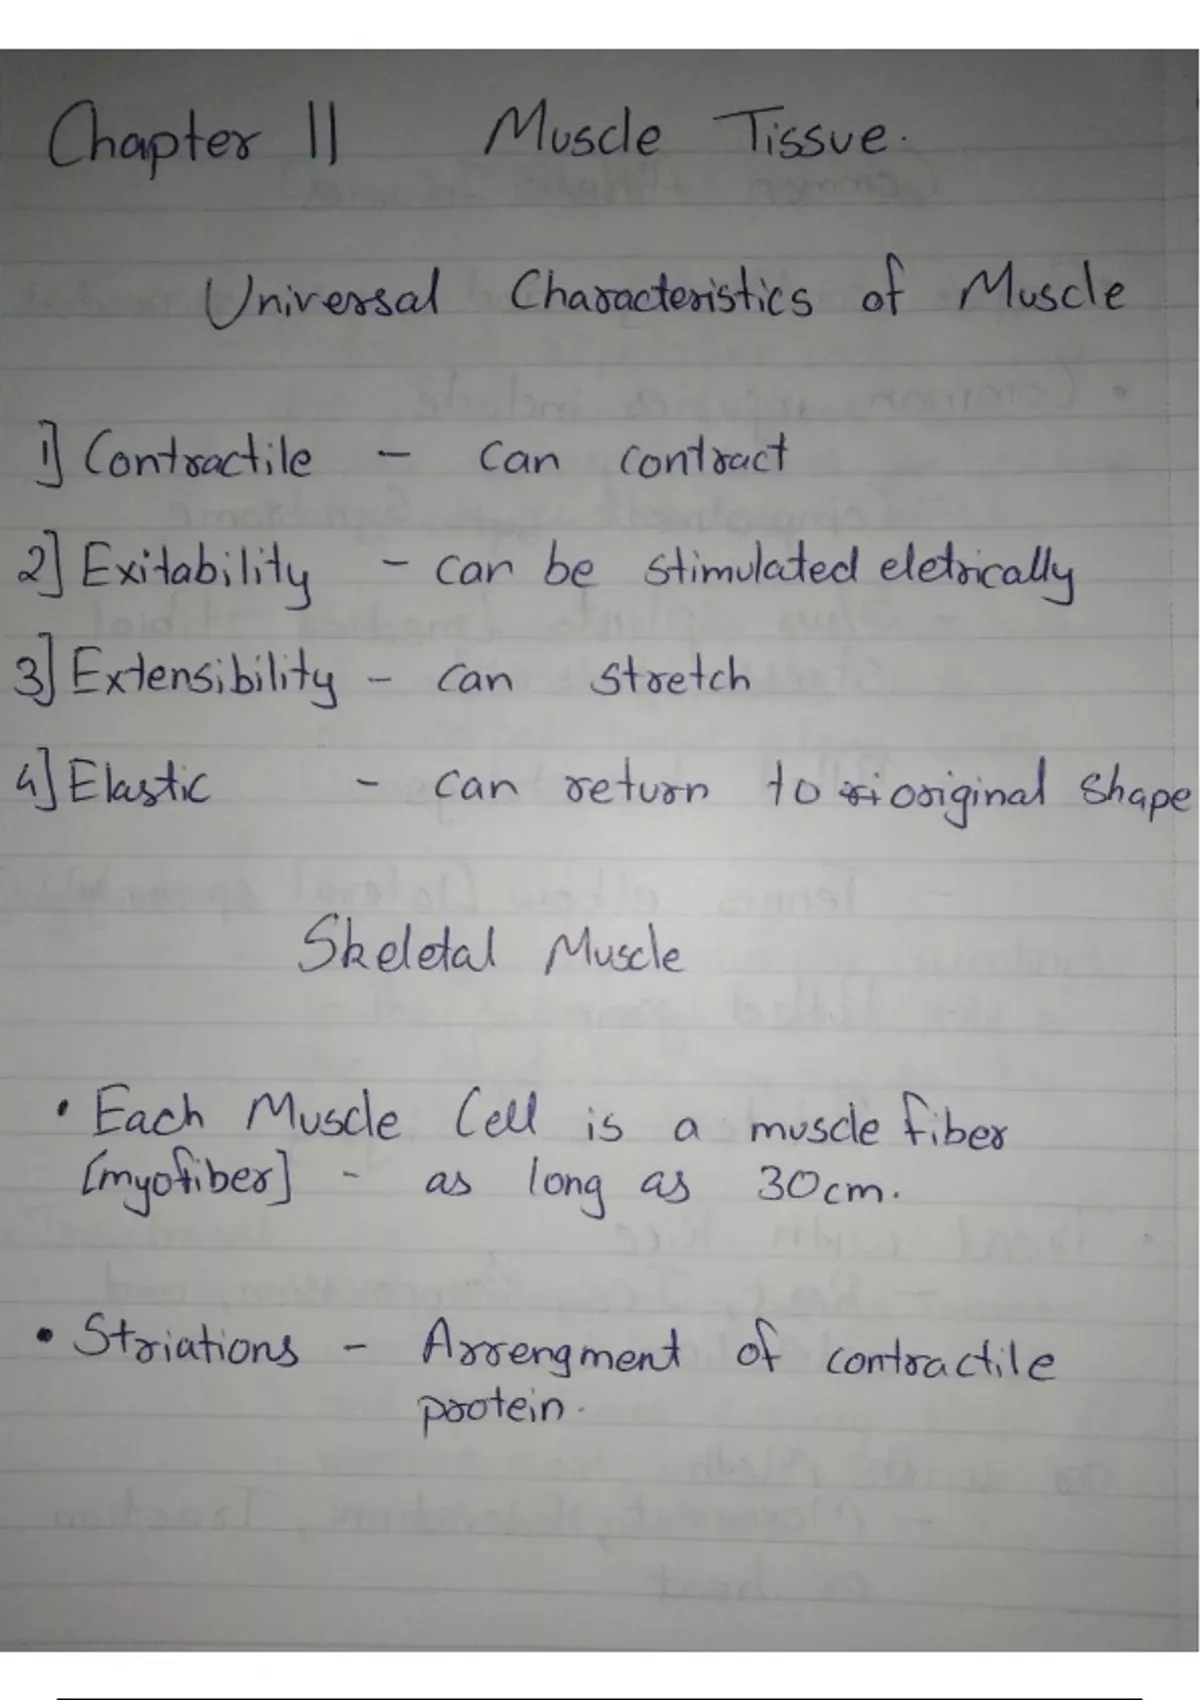 Chapter 11 Muscle Tissue.
Universal Characteristics of Muscle
1] Contractile - can contract
2] Exitability - can be stimulated eletrically
3] Extensibility - can stretch
4] Elastic - can return to original shape
Skeletal Muscle
• Each Muscle Cell is a muscle fiber
[myofiber] - as long as 30cm.
• Striations - Arrengment of contractile
protein.